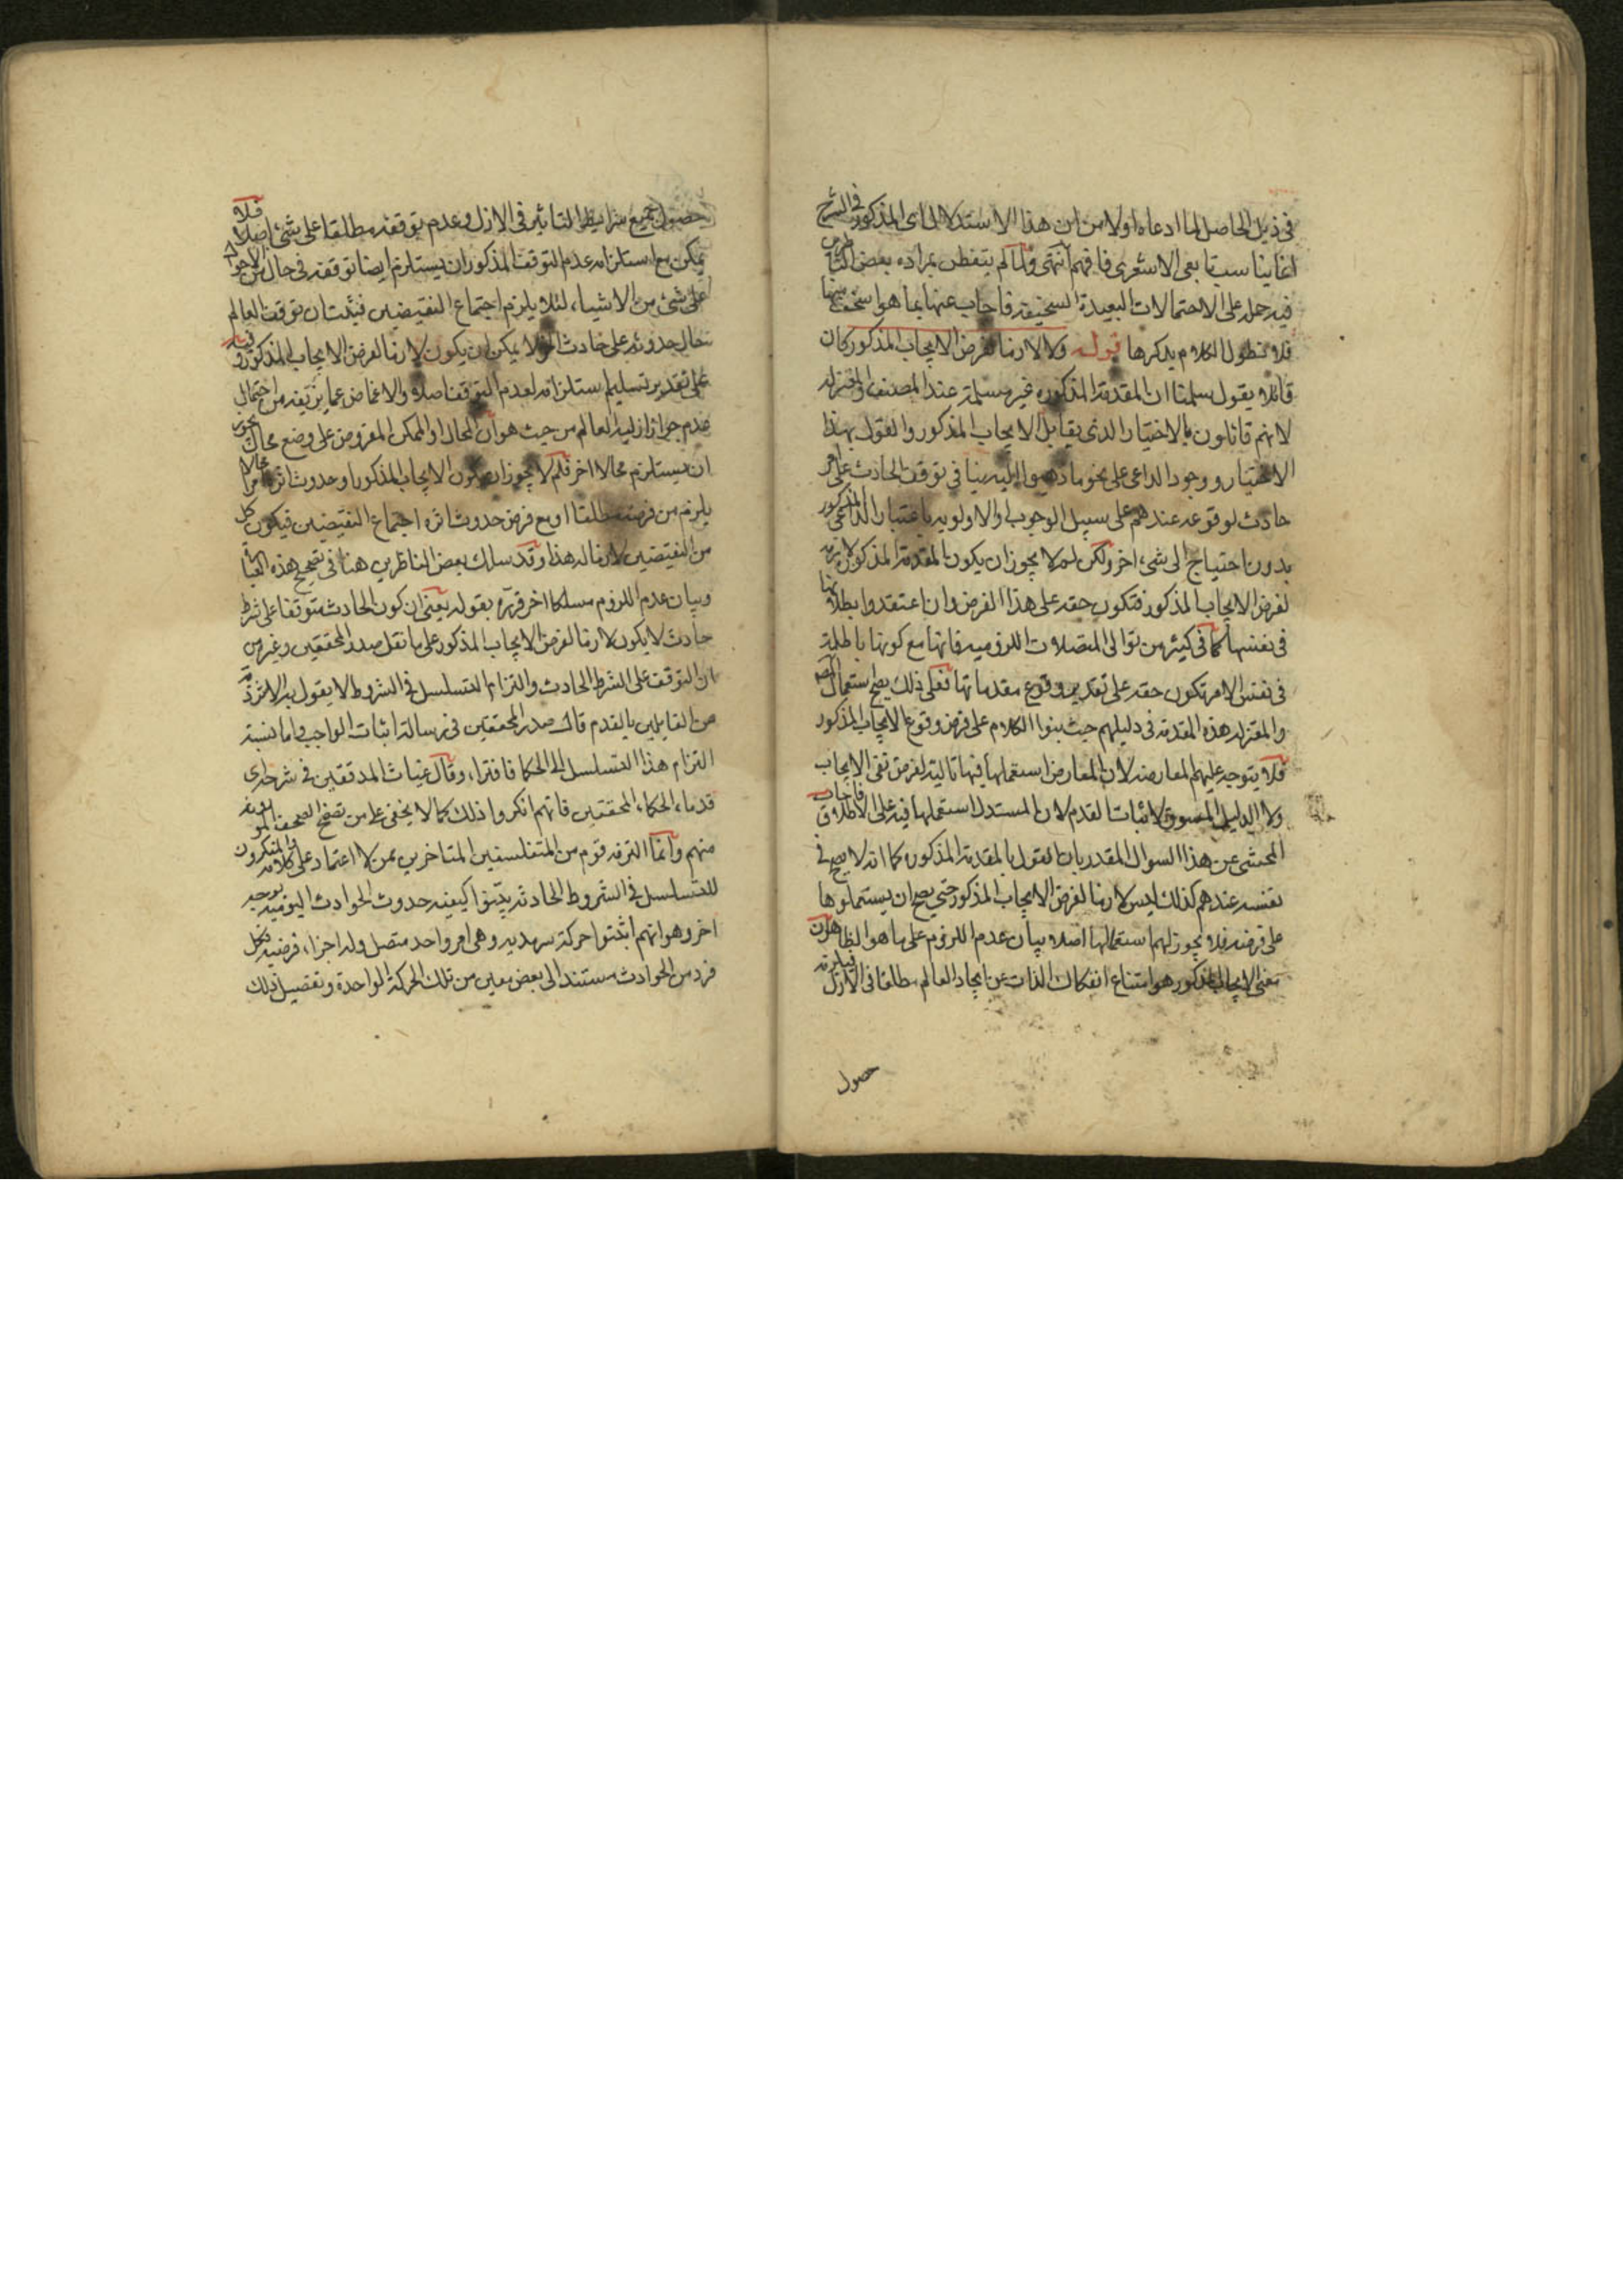 في ذيل الحاصل لما ادعاه اولا من ان هذا الاستدلال اى المذكور في الشرح
انما يناسب تابعى الاشعرى فافهم انتهى ولما لم يتفطن بمراده بعض
فيه حمله على الاحتمالات البعيدة السخيفة فاجاب عنها بما هو اسخف منها
فلا نطول الكلام بذكرها قوله ولا لازما لفرض الايجاب المذكور كان
قائلا يقول سلمنا ان المقدمة المذكورة غير مسلمة عند المصنف والمعتزلة
لانهم قائلون بالاختيار الذى يقابل الايجاب المذكور والقول بهذا
الاختيار ووجود الداعى على نحو ما ذهبوا اليه ينافي توقف الحادث على امر
حادث لوقوعه عندهم على سبيل الوجوب او الاولوية باعتبار الداعى المذكور
بدون احتياج الى شىء اخر ولكن لم لا يجوز ان يكون المقدمة المذكورة لازمة
لفرض الايجاب المذكور فتكون حقة على هذا الفرض وان اعتقدوا بطلانها
في نفسها كما في كثير من توالى المتصلات اللزومية فانها مع كونها باطلة
في نفس الامر تكون حقة على تقدير وقوع مقدماتها فعلى ذلك يصح استعمال المصنف
والمعتزلة هذه المقدمة في دليلهم حيث بنوا الكلام على فرض وقوع الايجاب المذكور
فلا يتوجه عليهم المعارضة لان المعارض استعملها فيها تالية لفرض نفى الايجاب
ولا الدليل المسوق لاثبات القدم لان المستدل استعملها فيه على الاطلاق فاجاب
المحشى عن هذا السوال المقدر بان القول بالمقدمة المذكورة كما انه لا يصح في
نفسه عندهم كذلك ليس لازما لفرض الايجاب المذكور حتى يصح ان يستعملوها
على فرضه فلا يجوز لهم استعمالها اصلا بيان عدم اللزوم على ما هو الظاهر ان
معنى الايجاب المذكور هو امتناع انفكاك الذات عن ايجاد العالم مطلقا في الازل فيلزمه
حصول
حصول جميع شرايط التاثير في الازل وعدم توقفه مطلقا على شىء اصلا فلا
يمكن مع استلزامه عدم التوقف المذكور ان يستلزم ايضا توقفه في حال من الاحوال
على شىء من الاشياء لئلا يلزم اجتماع النقيضين فيثبت ان توقف العالم
حال حدوثه على حادث اخر لا يمكن ان يكون لازما لفرض الايجاب المذكور وفيه
على تقدير تسليم استلزامه لعدم التوقف اصلا والاغماض عما يزيفه من احتمال
عدم جواز ازلية العالم من حيث هو ان المحال او الممكن المفروض على وضع محال يجوز
ان يستلزم محالا اخر فلم لا يجوز ان يكون الايجاب المذكور او حدوث اثره محالا
يلزم من فرضه مطلقا او مع فرض حدوث اثره اجتماع النقيضين فيكون كل
من النقيضين لازما له هذا وقد سلك بعض الناظرين هنا في تصحيح هذه
وبيان عدم اللزوم مسلكا اخر قرره بقوله يعنى ان كون الحادث متوقفا على شرط
حادث لا يكون لازما لفرض الايجاب المذكور على ما نقل صدر المحققين وغيره من
ان التوقف على الشرط الحادث والتزام التسلسل في الشروط لا يقول به الا شرذمة
من القايلين بالقدم قال صدر المحققين في رسالة اثبات الواجب واما نسبة
التزام هذا التسلسل الى الحكما فافتراء وقال غياث المدققين في شرحه
قدماء الحكماء المحققين فانهم انكروا ذلك كما لا يخفى على من تصفح الصحف
منهم وانما التزمه قوم من المتفلسفين المتاخرين ممن لا اعتماد على كلامه والمنكرون
للتسلسل في الشروط الحادثة بينوا كيفية حدوث الحوادث اليومية بوجه
اخر وهو انهم اثبتوا حركة سرمدية وهى امر واحد متصل وله اجزاء فرضية فكل
فرد من الحوادث مستند الى بعض معين من تلك الحركة الواحدة وتفصيل ذلك